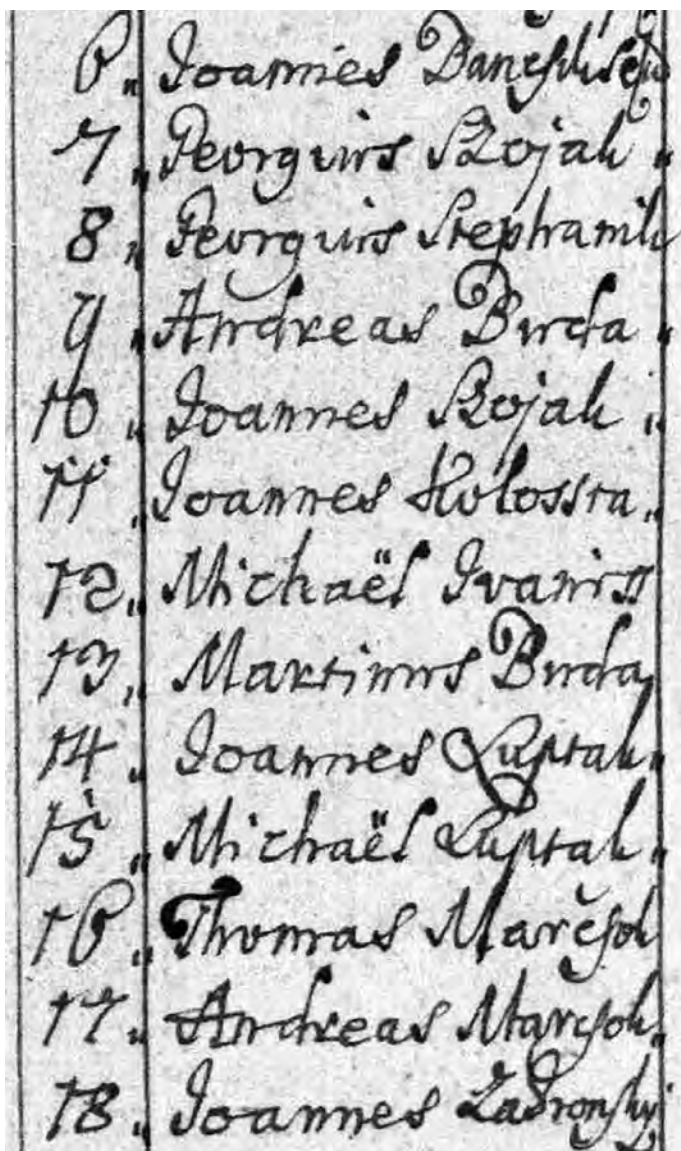 6. Joannes
7. Georgius Bojak
8. Georgius Stephanik
9. Andreas Burda
10. Joannes Bojak
11. Joannes Holossta
12. Michaël Ivaniss
13. Martinus Burda
14. Joannes Luptak
15. Michaël Luptak
16. Thomas Marčſok
17. Andreas Marčſok
18. Joannes Zadronſky